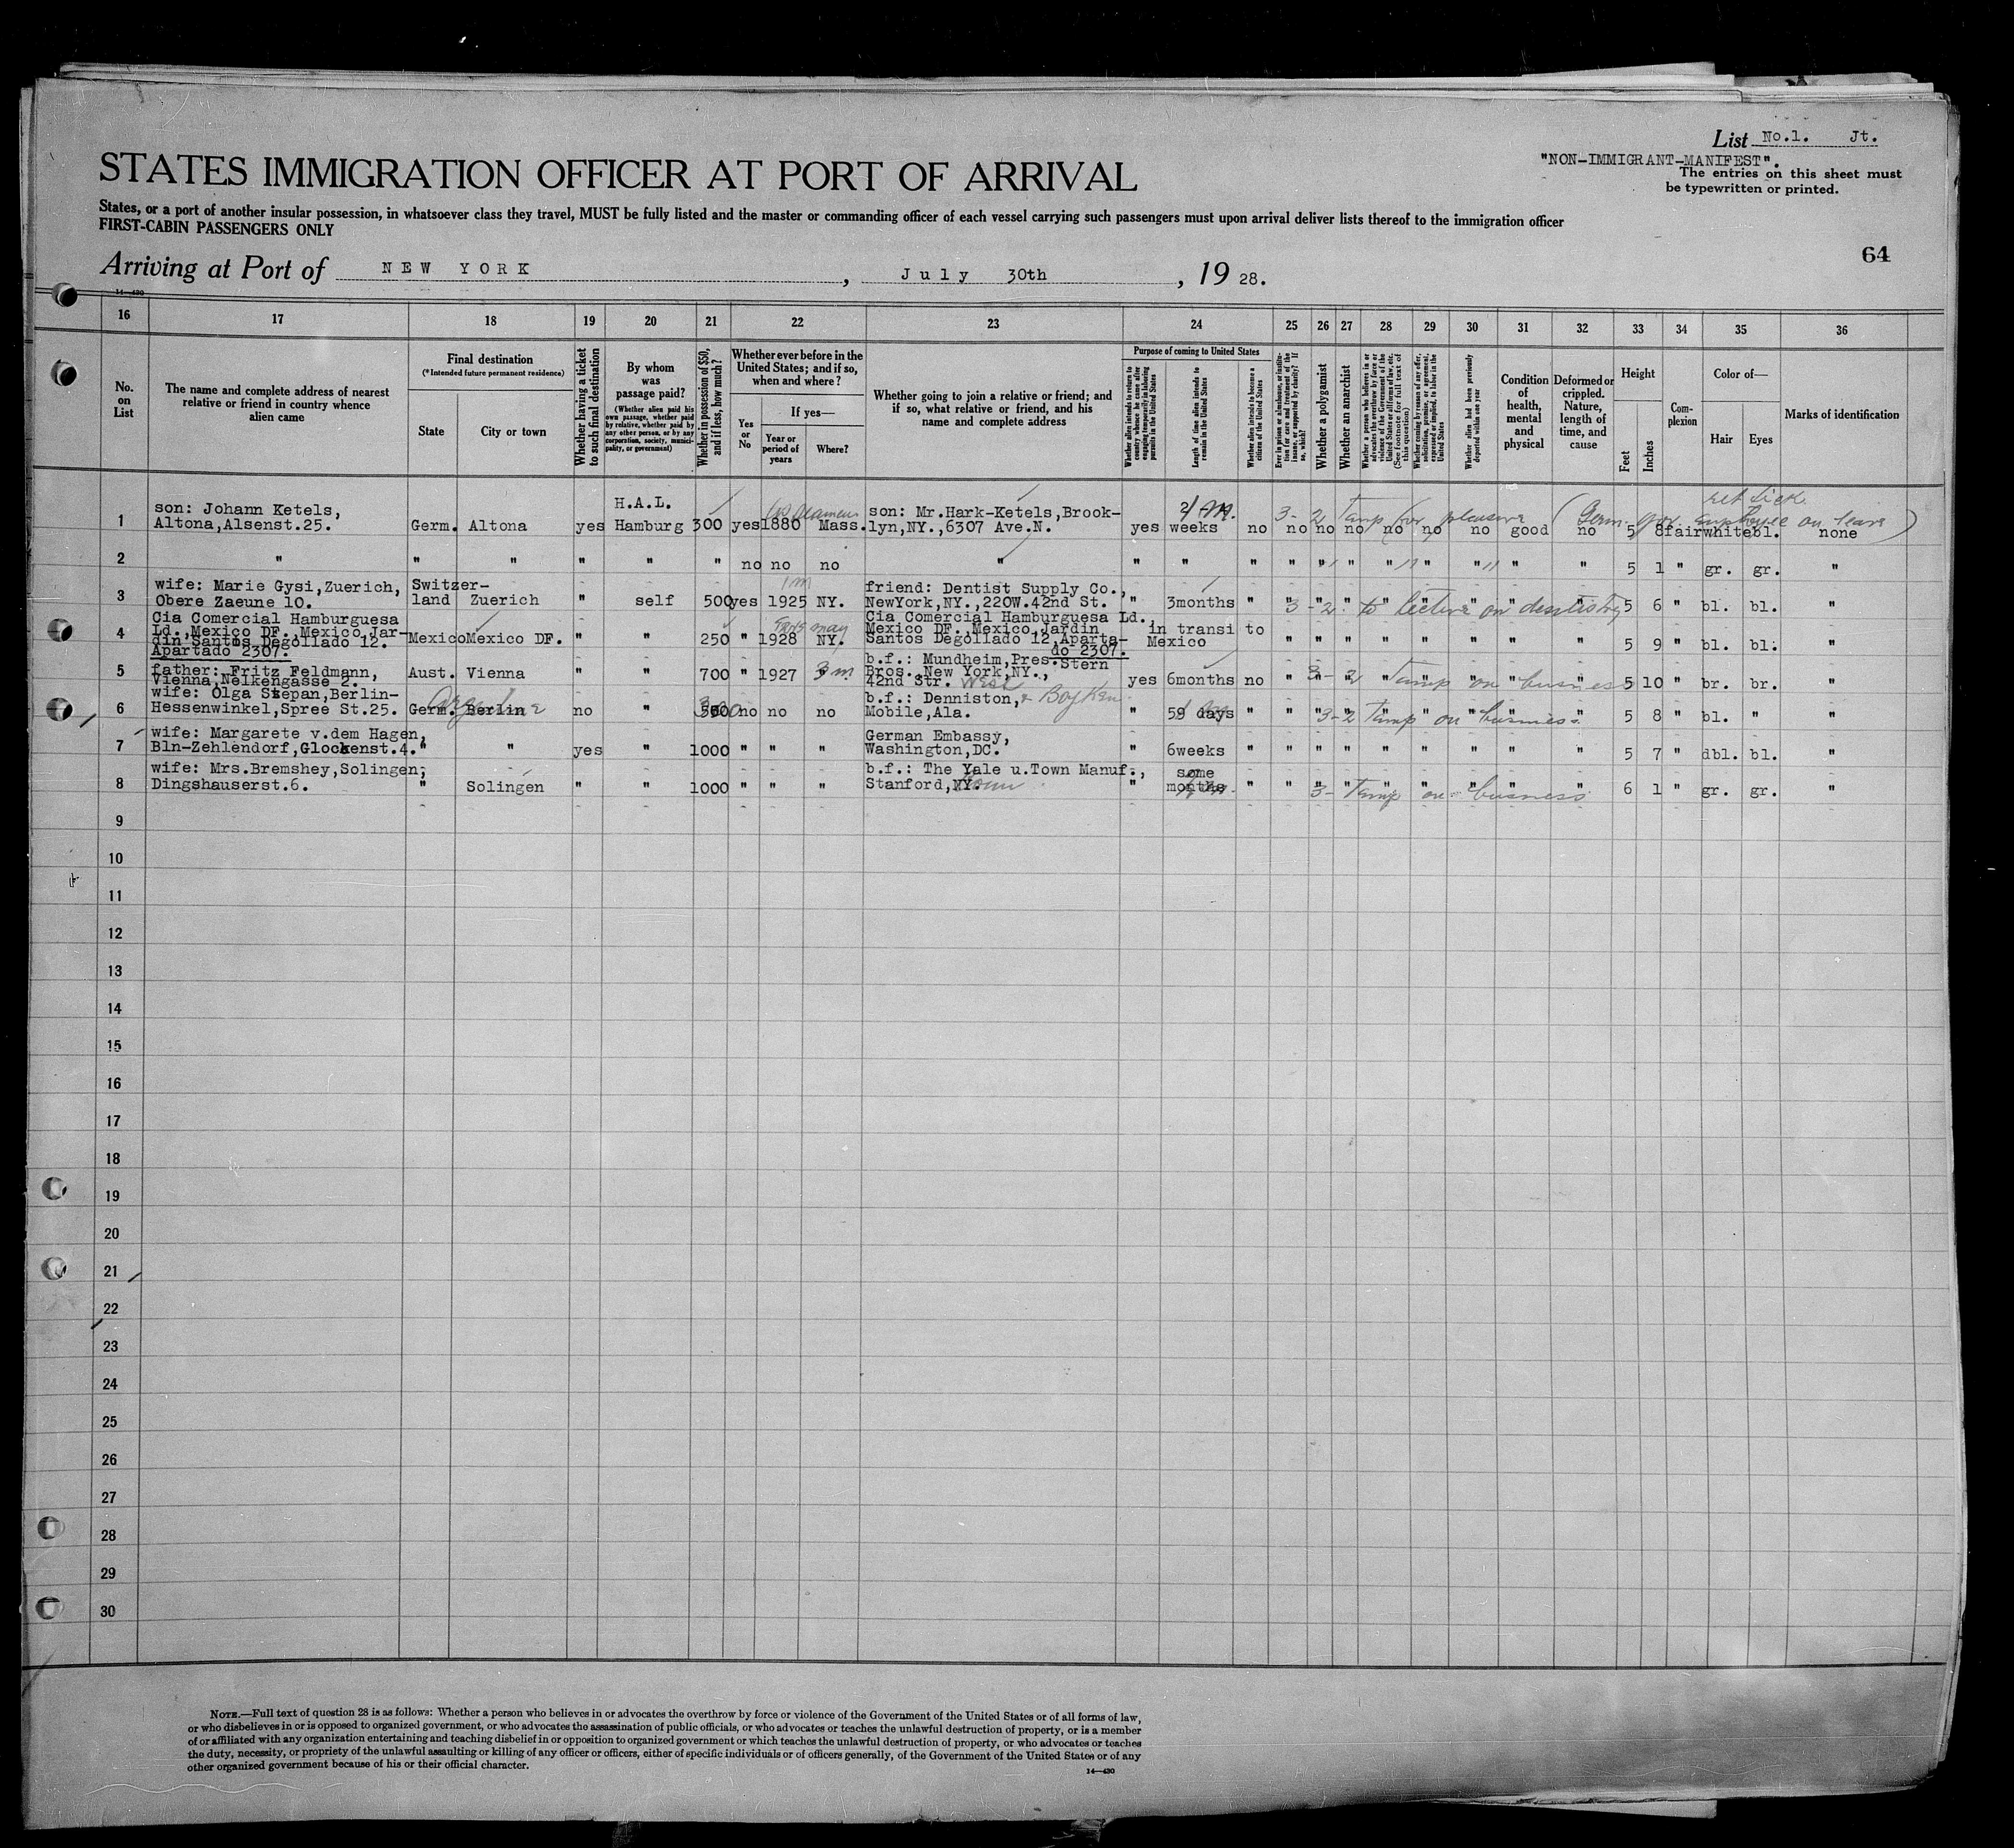 List No.1. Jt.
"NON-IMMIGRANT-MANIFEST".
The entries on this sheet must
be typewritten or printed.
STATES IMMIGRATION OFFICER AT PORT OF ARRIVAL
States, or a port of another insular possession, in whatsoever class they travel, MUST be fully listed and the master or commanding officer of each vessel carrying such passengers must upon arrival deliver lists thereof to the immigration officer
FIRST-CABIN PASSENGERS ONLY
64
Arriving at Port of NEW YORK, July 30th, 19 28.
14—430
16 17 18 19 20 21 22 23 24 25 26 27 28 29 30 31 32 33 34 35 36
No. on List
The name and complete address of nearest relative or friend in country whence alien came
Final destination
(*Intended future permanent residence)
State
City or town
Whether having a ticket to such final destination
By whom was passage paid?
(Whether alien paid his own passage, whether paid by relative, whether paid by any other person, or by any corporation, society, municipality, or government)
Whether in possession of $50, and if less, how much?
Whether ever before in the United States; and if so, when and where?
Yes or No
If yes—
Year or period of years
Where?
Whether going to join a relative or friend; and if so, what relative or friend, and his name and complete address
Purpose of coming to United States
Whether alien intends to return to country whence he came after engaging temporarily in laboring pursuits in the United States
Length of time alien intends to remain in the United States
Whether alien intends to become a citizen of the United States
Ever in prison or almshouse, or institution for care and treatment of the insane, or supported by charity? If so, which?
Whether a polygamist
Whether an anarchist
Whether a person who believes in or advocates the overthrow by force or violence of the Government of the United States or all forms of law, etc. (See footnote for full text of this question)
Whether coming by reason of any offer, solicitation, promise, or agreement, expressed or implied, to labor in the United States
Whether alien had been previously deported within one year
Condition of health, mental and physical
Deformed or crippled. Nature, length of time, and cause
Height
Feet
Inches
Complexion
Color of—
Hair
Eyes
Marks of identification
1 son: Johann Ketels, Altona,Alsenst.25. Germ. Altona yes H.A.L. Hamburg 300 yes 1880 Mass. son: Mr.Hark-Ketels,Brooklyn,NY.,6307 Ave.N. yes weeks no no no no no no no good no 5 8 fair white bl. none
3-2 Temp for pleasure (Germ. gov. employee on leave)
2 " " " " " " no no no " " " " " " " " " " " " 5 1 " gr. gr. "
3 wife: Marie Gysi,Zuerich, Obere Zaeune 10. Switzerland Zuerich " self 500 yes 1925 NY. friend: Dentist Supply Co., NewYork,NY.,220W.42nd St. " 3months " " " " " " " " " 5 6 " bl. bl. "
1m
3-2. to lecture on dentistry
4 Cia Comercial Hamburguesa Ld.,Mexico DF.,Mexico,Jardin Santos Degollado 12. Apartado 2307. Mexico Mexico DF. " " 250 " 1928 NY. Cia Comercial Hamburguesa Ld. Mexico DF.,Mexico,Jardin Santos Degollado 12,Apartado 2307. in transi to Mexico " " " " " " " " 5 9 " bl. bl. "
5 father: Fritz Feldmann, Vienna,Nelkengasse 2. Aust. Vienna " " 700 " 1927 3m b.f.: Mundheim,Pres.Stern Bros.,New York,NY., 42nd Str. West yes 6months no " " " " " " " " 5 10 " br. br. "
3-2 Temp on business
6 wife: Olga Stepan,Berlin-Hessenwinkel,Spree St.25. Germ. Berlin no " 500 no no no b.f.: Denniston, & Boykin Mobile,Ala. " 59 days " " " " " " " " " 5 8 " bl. " "
Argentine
3-2 Temp on business.
7 wife: Margarete v.dem Hagen, Bln-Zehlendorf,Glockenst.4. " " yes " 1000 " " " German Embassy, Washington,DC. " 6weeks " " " " " " " " " 5 7 " dbl. bl. "
8 wife: Mrs.Bremshey,Solingen, Dingshauserst.6. " Solingen " " 1000 " " " b.f.: The Yale u.Town Manuf., Stanford,NY. Conn " some months " " " " " " " " " 6 1 " gr. gr. "
3- Temp on business
9
10
11
12
13
14
15
16
17
18
19
20
21
22
23
24
25
26
27
28
29
30
NOTE.—Full text of question 28 is as follows: Whether a person who believes in or advocates the overthrow by force or violence of the Government of the United States or of all forms of law,
or who disbelieves in or is opposed to organized government, or who advocates the assassination of public officials, or who advocates or teaches the unlawful destruction of property, or is a member
of or affiliated with any organization entertaining and teaching disbelief in or opposition to organized government or which teaches the unlawful destruction of property, or who advocates or teaches
the duty, necessity, or propriety of the unlawful assaulting or killing of any officer or officers, either of specific individuals or of officers generally, of the Government of the United States or of any
other organized government because of his or their official character.
14—430